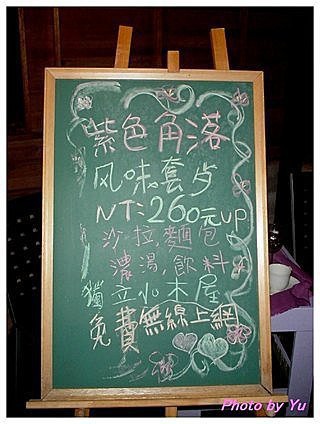 紫色角落
风味套歺
NT:260元up
沙拉,麵包
濃湯,飲料
獨立小木屋
免費無線上網
Photo by Yu